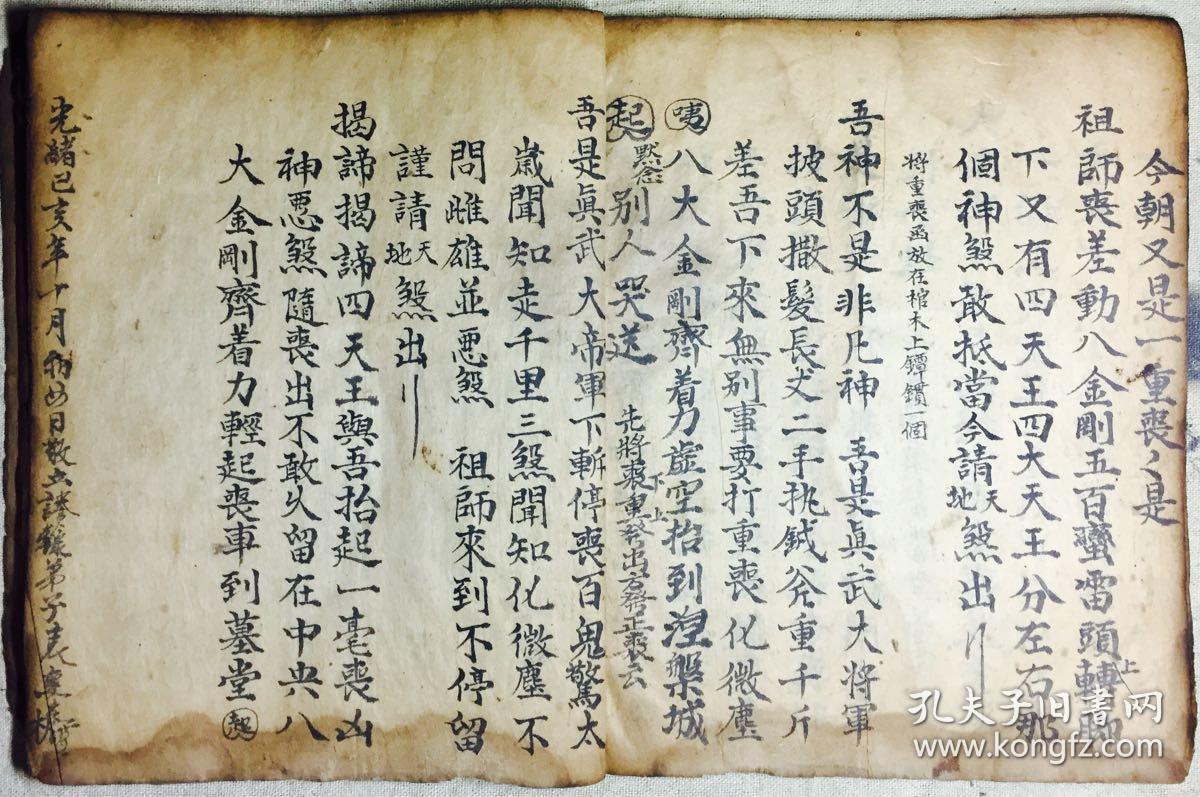 今朝又是一重喪々是
祖師喪差動八金剛五百蠻雷頭轉腳上
下又有四天王四大天王分左右那
個神煞敢抵當今請天地煞出
將重喪函放在棺木上鐔鑕一個
吾神不是非凡神 吾是眞武大將軍
披頭撒髮長丈二手執鉞斧重千斤
差吾下來無別事要打重喪化微塵
咦 八大金剛齊着力虛空抬到涅槃城
起 默念 别人哭送 先將喪重發出去發正喪云 下上
吾是眞武大帝軍下斬停喪百鬼驚太
歲聞知走千里三煞聞知化微塵不
問雌雄並悪煞 祖師來到不停留
謹請天地煞出
揭諦揭諦四天王與吾抬起一毫喪凶
神悪煞隨喪出不敢久留在中央八
大金剛齊着力輕起喪車到墓堂 起
光緒己亥年十月 日 弟子
孔夫子旧书网
www.kongfz.com